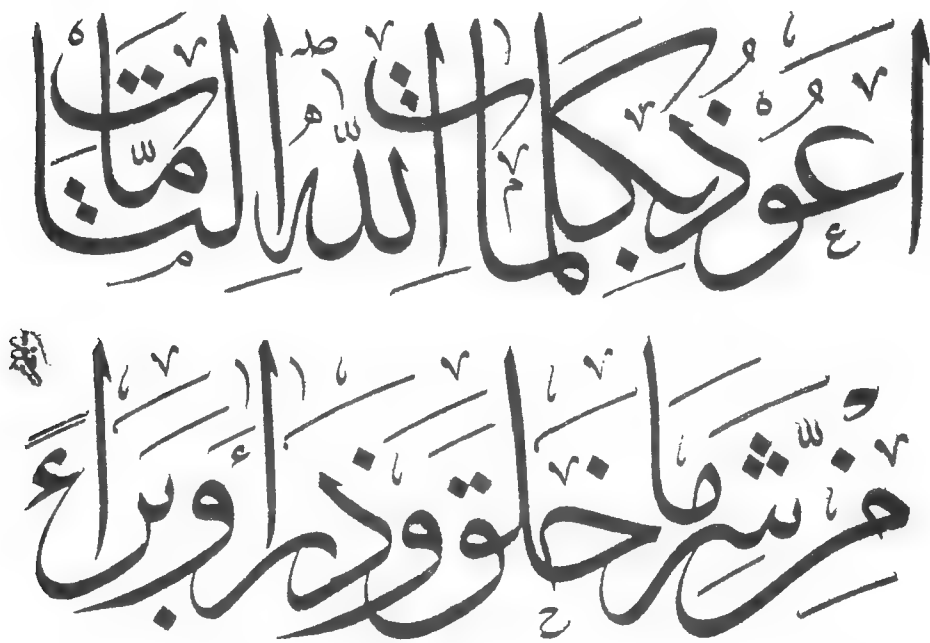 أَعُوذُ بِكَلِمَاتِ اللهِ التَّامَّاتِ
مِنْ شَرِّ مَا خَلَقَ وَذَرَأَ وَبَرَاءً